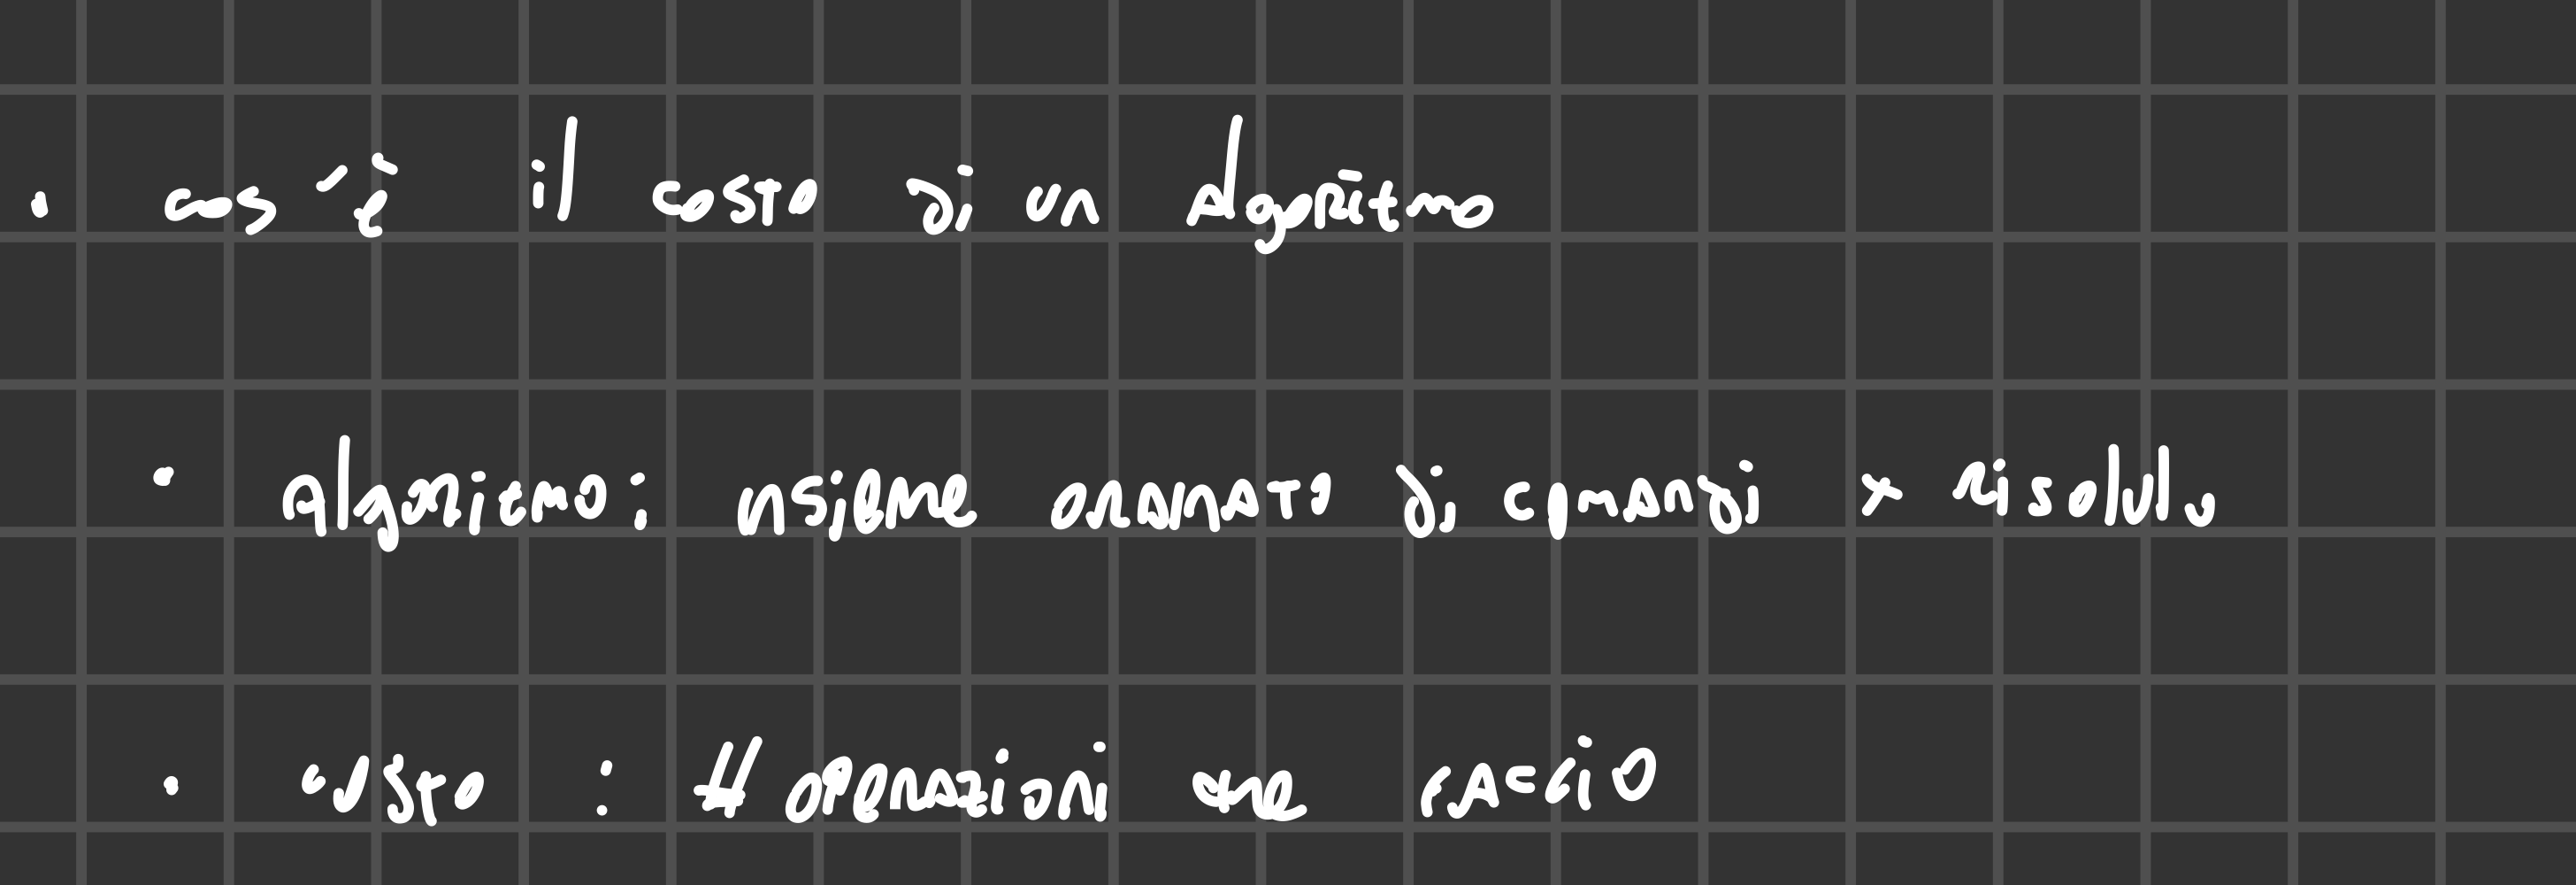 • cos'è il costo di un algoritmo
• algoritmo: insieme ordinato di comandi x
• costo : # operazioni che faccio